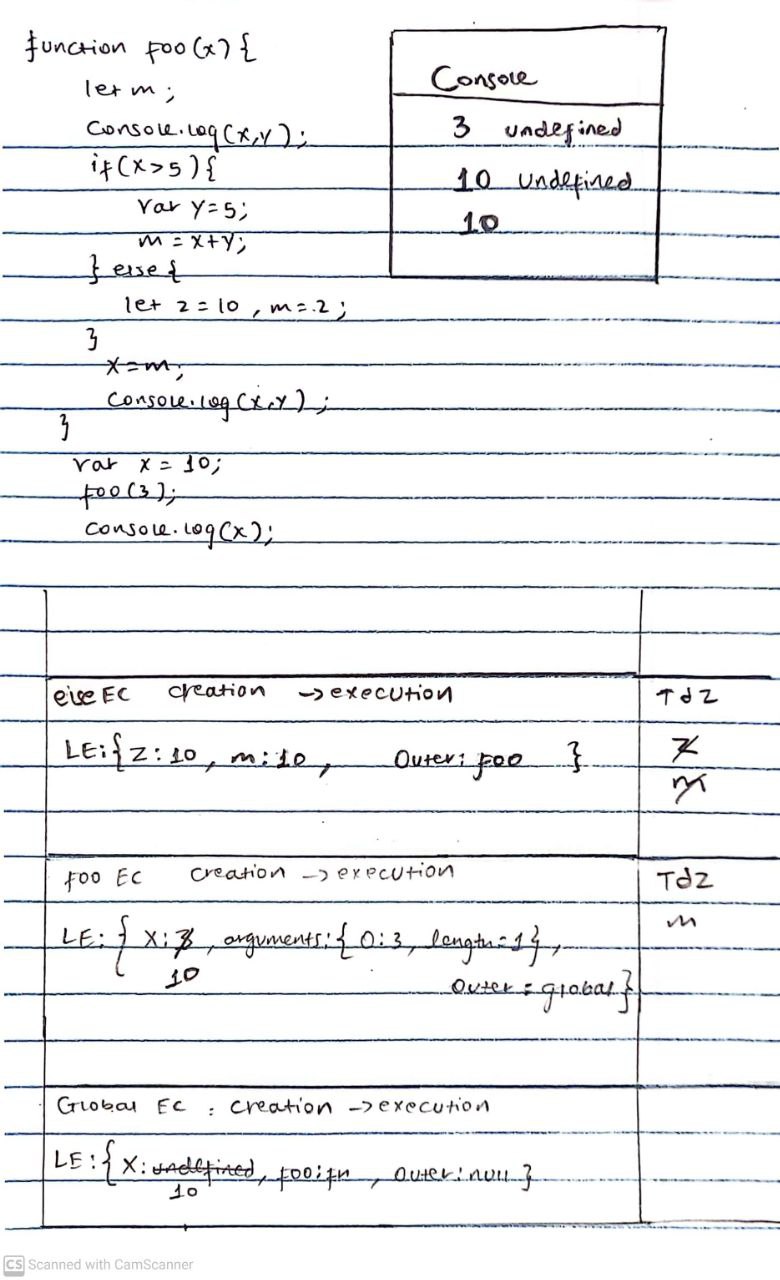 function foo(x) {
let m ;
Console.log(x,y);
if(x>5) {
var y=5;
m = x+y;
} else {
let z = 10 , m = 2 ;
}
x=m;
Console.log(x,y) ;
}
var x = 10;
foo(3);
console.log(x);
Console
3 undefined
10 undefined
10
else EC creation -> execution
TdZ
LE:{ Z: 10 , m: 10 , Outer: foo }
z
m
foo EC creation -> execution
TdZ
LE: { X: 3 , arguments: { 0:3, length=1} ,
m
10
Outer = global }
Global EC : creation -> execution
LE:{ X: undefined, foo: fn , outer: null }
10
CS Scanned with CamScanner